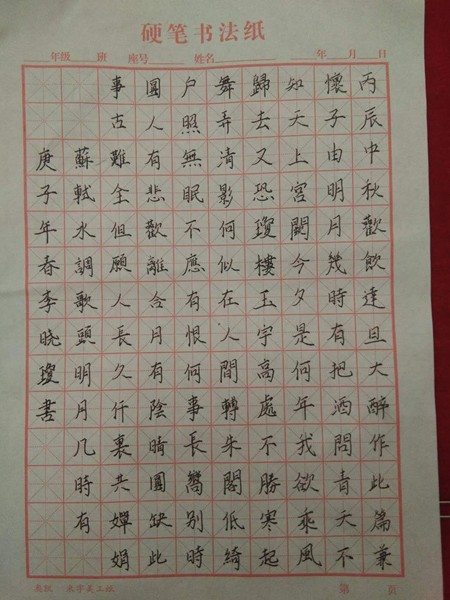 硬笔书法纸
年级 班 座号 姓名 年 月 日
丙辰中秋歡飲達旦大醉作此篇兼
懷子由明月幾時有把酒問青天不
知天上宮闕今夕是何年我欲乘風
歸去又恐瓊樓玉宇高處不勝寒起
舞弄清影何似在人間轉朱閣低綺
户照無眠不應有恨何事長嚮别時
圓人有悲歡離合月有陰晴圓缺此
事古難全但願人長久仟裏共嬋娟
蘇軾水調歌頭明月几時有
庚子年春李晓瓊書
第 页